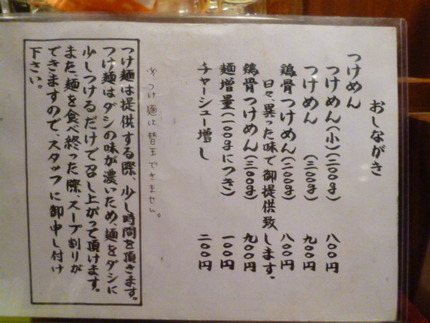 おしながき
つけめん
つけめん(小)(二〇〇g) 八〇〇円
つけめん (三〇〇g) 九〇〇円
鶏骨つけめん(二〇〇g) 八〇〇円
日々異った味で御提供致します。
鶏骨つけめん(三〇〇g) 九〇〇円
麺増量(一〇〇gにつき) 一〇〇円
チャーシュー増し 二〇〇円
※つけ麺は替玉できません。
つけ麺は提供する際、少し時間を頂きます。
つけ麺はダシの味が濃いため麺をダシに
少しつけるだけで召し上がって頂けます。
また麺を食べ終った際、スープ割りが
できますので、スタッフに御申し付け
下さい。